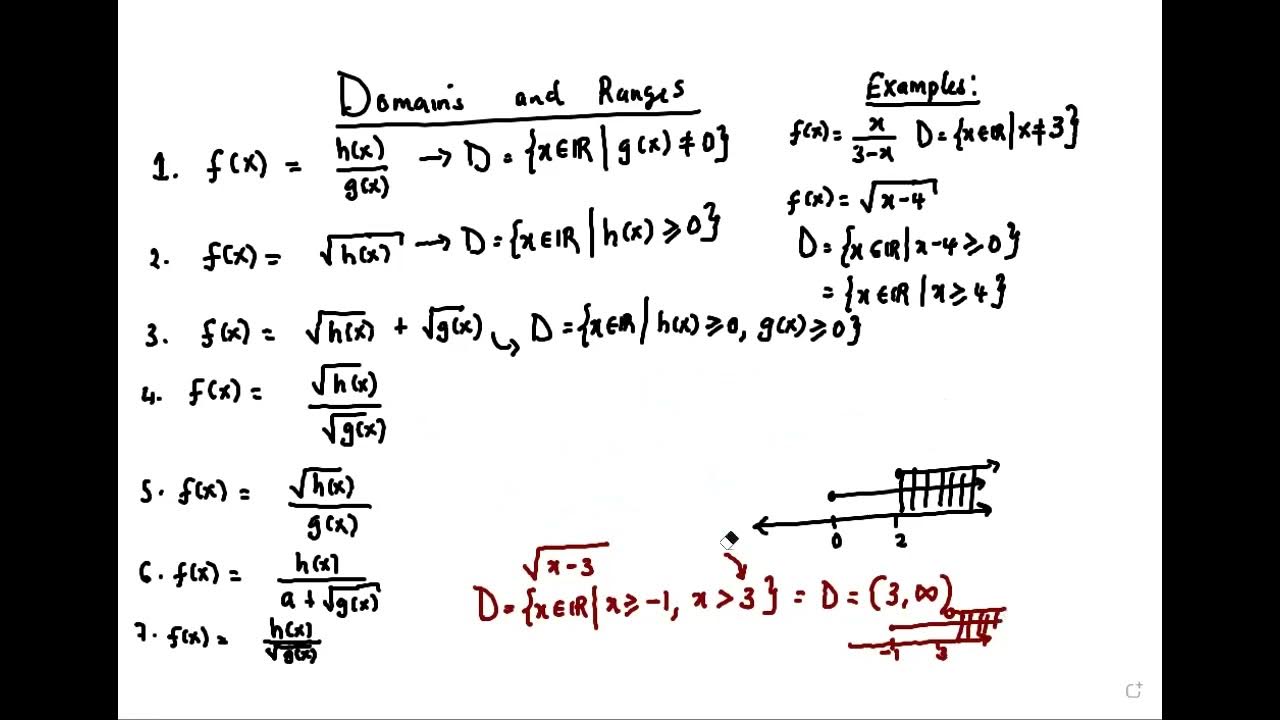 Domains and Ranges
1. f(x) = h(x)/g(x) → D = {x∈ℝ | g(x) ≠ 0}
2. f(x) = √h(x) → D = {x∈ℝ | h(x) ≥ 0}
3. f(x) = √h(x) + √g(x) ↪ D = {x∈ℝ | h(x) ≥ 0, g(x) ≥ 0}
4. f(x) = √h(x)/√g(x)
5. f(x) = √h(x)/g(x)
6. f(x) = h(x)/(a + √g(x))
7. f(x) = h(x)/√g(x)
Examples:
f(x) = x/(3-x) D = {x∈ℝ | x ≠ 3}
f(x) = √(x-4)
D = {x∈ℝ | x-4 ≥ 0}
= {x∈ℝ | x ≥ 4}
0 2
√(x-3)
D = {x∈ℝ | x ≥ -1, x > 3} = D = (3, ∞)
-1 3